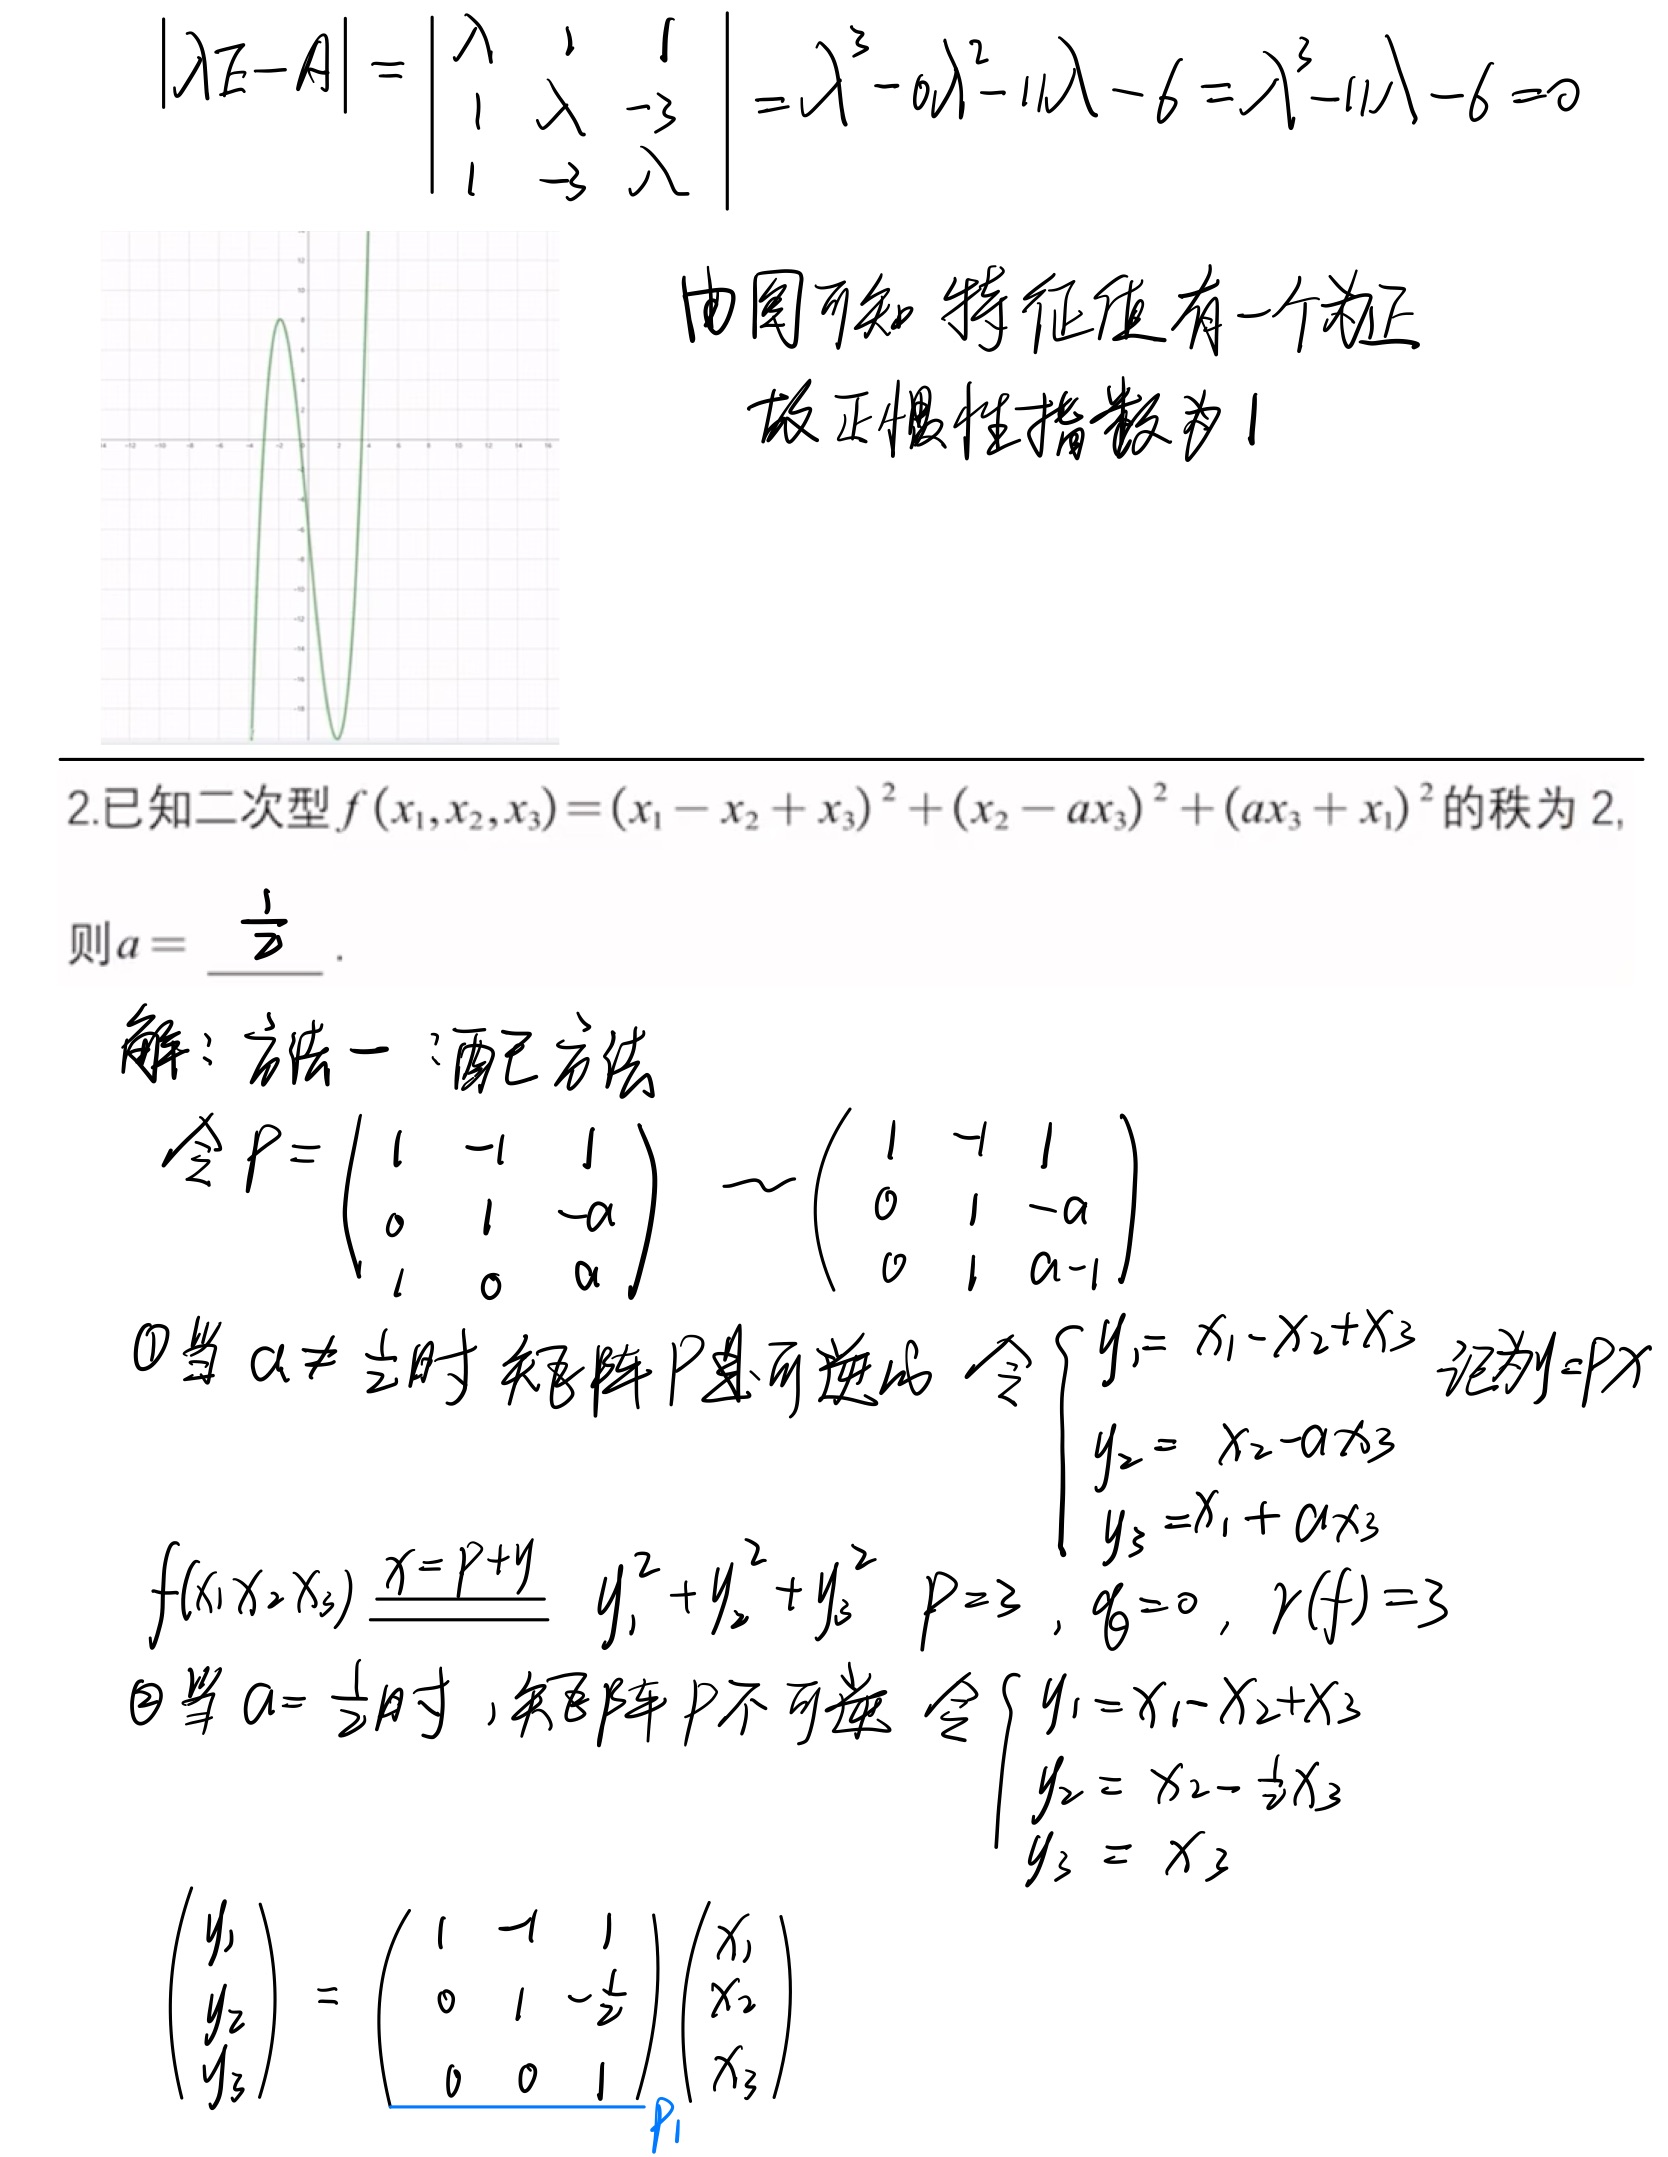 |λE-A| = | λ 1 1 | = λ³-0λ²-11λ-6 = λ³-11λ-6=0
| 1 λ -3 |
| 1 -3 λ |
由图可知 特征值有一个为正
故正惯性指数为1
2.已知二次型 f(x₁,x₂,x₃)=(x₁-x₂+x₃)²+(x₂-ax₃)²+(ax₃+x₁)²的秩为 2,
则a= 1/2 .
解：方法一：配方法
令P= ( 1 -1 1 ; 0 1 -a ; 1 0 a ) ~ ( 1 -1 1 ; 0 1 -a ; 0 1 a-1 )
①当 a≠1/2时 矩阵P是可逆的 令 { y₁= x₁-x₂+x₃ 记为y=Px
y₂= x₂-ax₃
y₃=x₁+ax₃
f(x₁x₂x₃) x=P+y y₁²+y₂²+y₃² p=3, q=0, r(f)=3
②当 a=1/2时,矩阵P不可逆 令 { y₁=x₁-x₂+x₃
y₂= x₂-1/2x₃
y₃ = x₃
( y₁ ; y₂ ; y₃ ) = ( 1 -1 1 ; 0 1 -1/2 ; 0 0 1 ) ( x₁ ; x₂ ; x₃ )
P₁